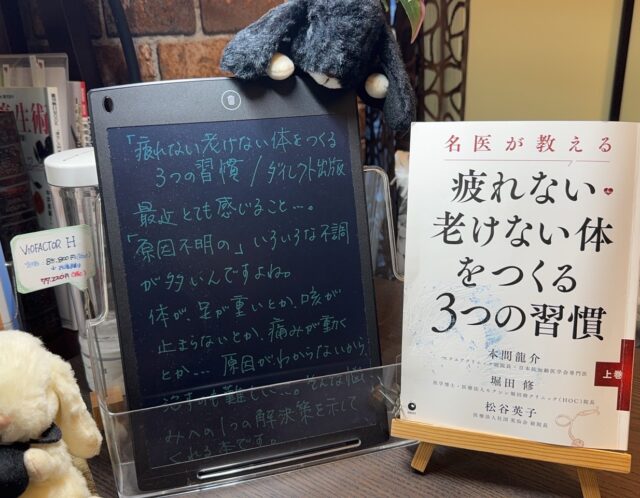 「疲れない老けない体をつくる
3つの習慣 / ダイレクト出版
最近とても感じること…。
「原因不明の」いろいろな不調
が多いんですよね。
体が、足が重いとか、咳が
止まらないとか、痛みが動く
とか… 原因がわからないから
治すのも難しい…。そんな悩
みへの1つの解決策を示して
くれる本です。
名医が教える
疲れない
老けない体
をつくる
3つの習慣
本間龍介
堀田 修
松谷英子
上巻
生術
VIOFACTOR H